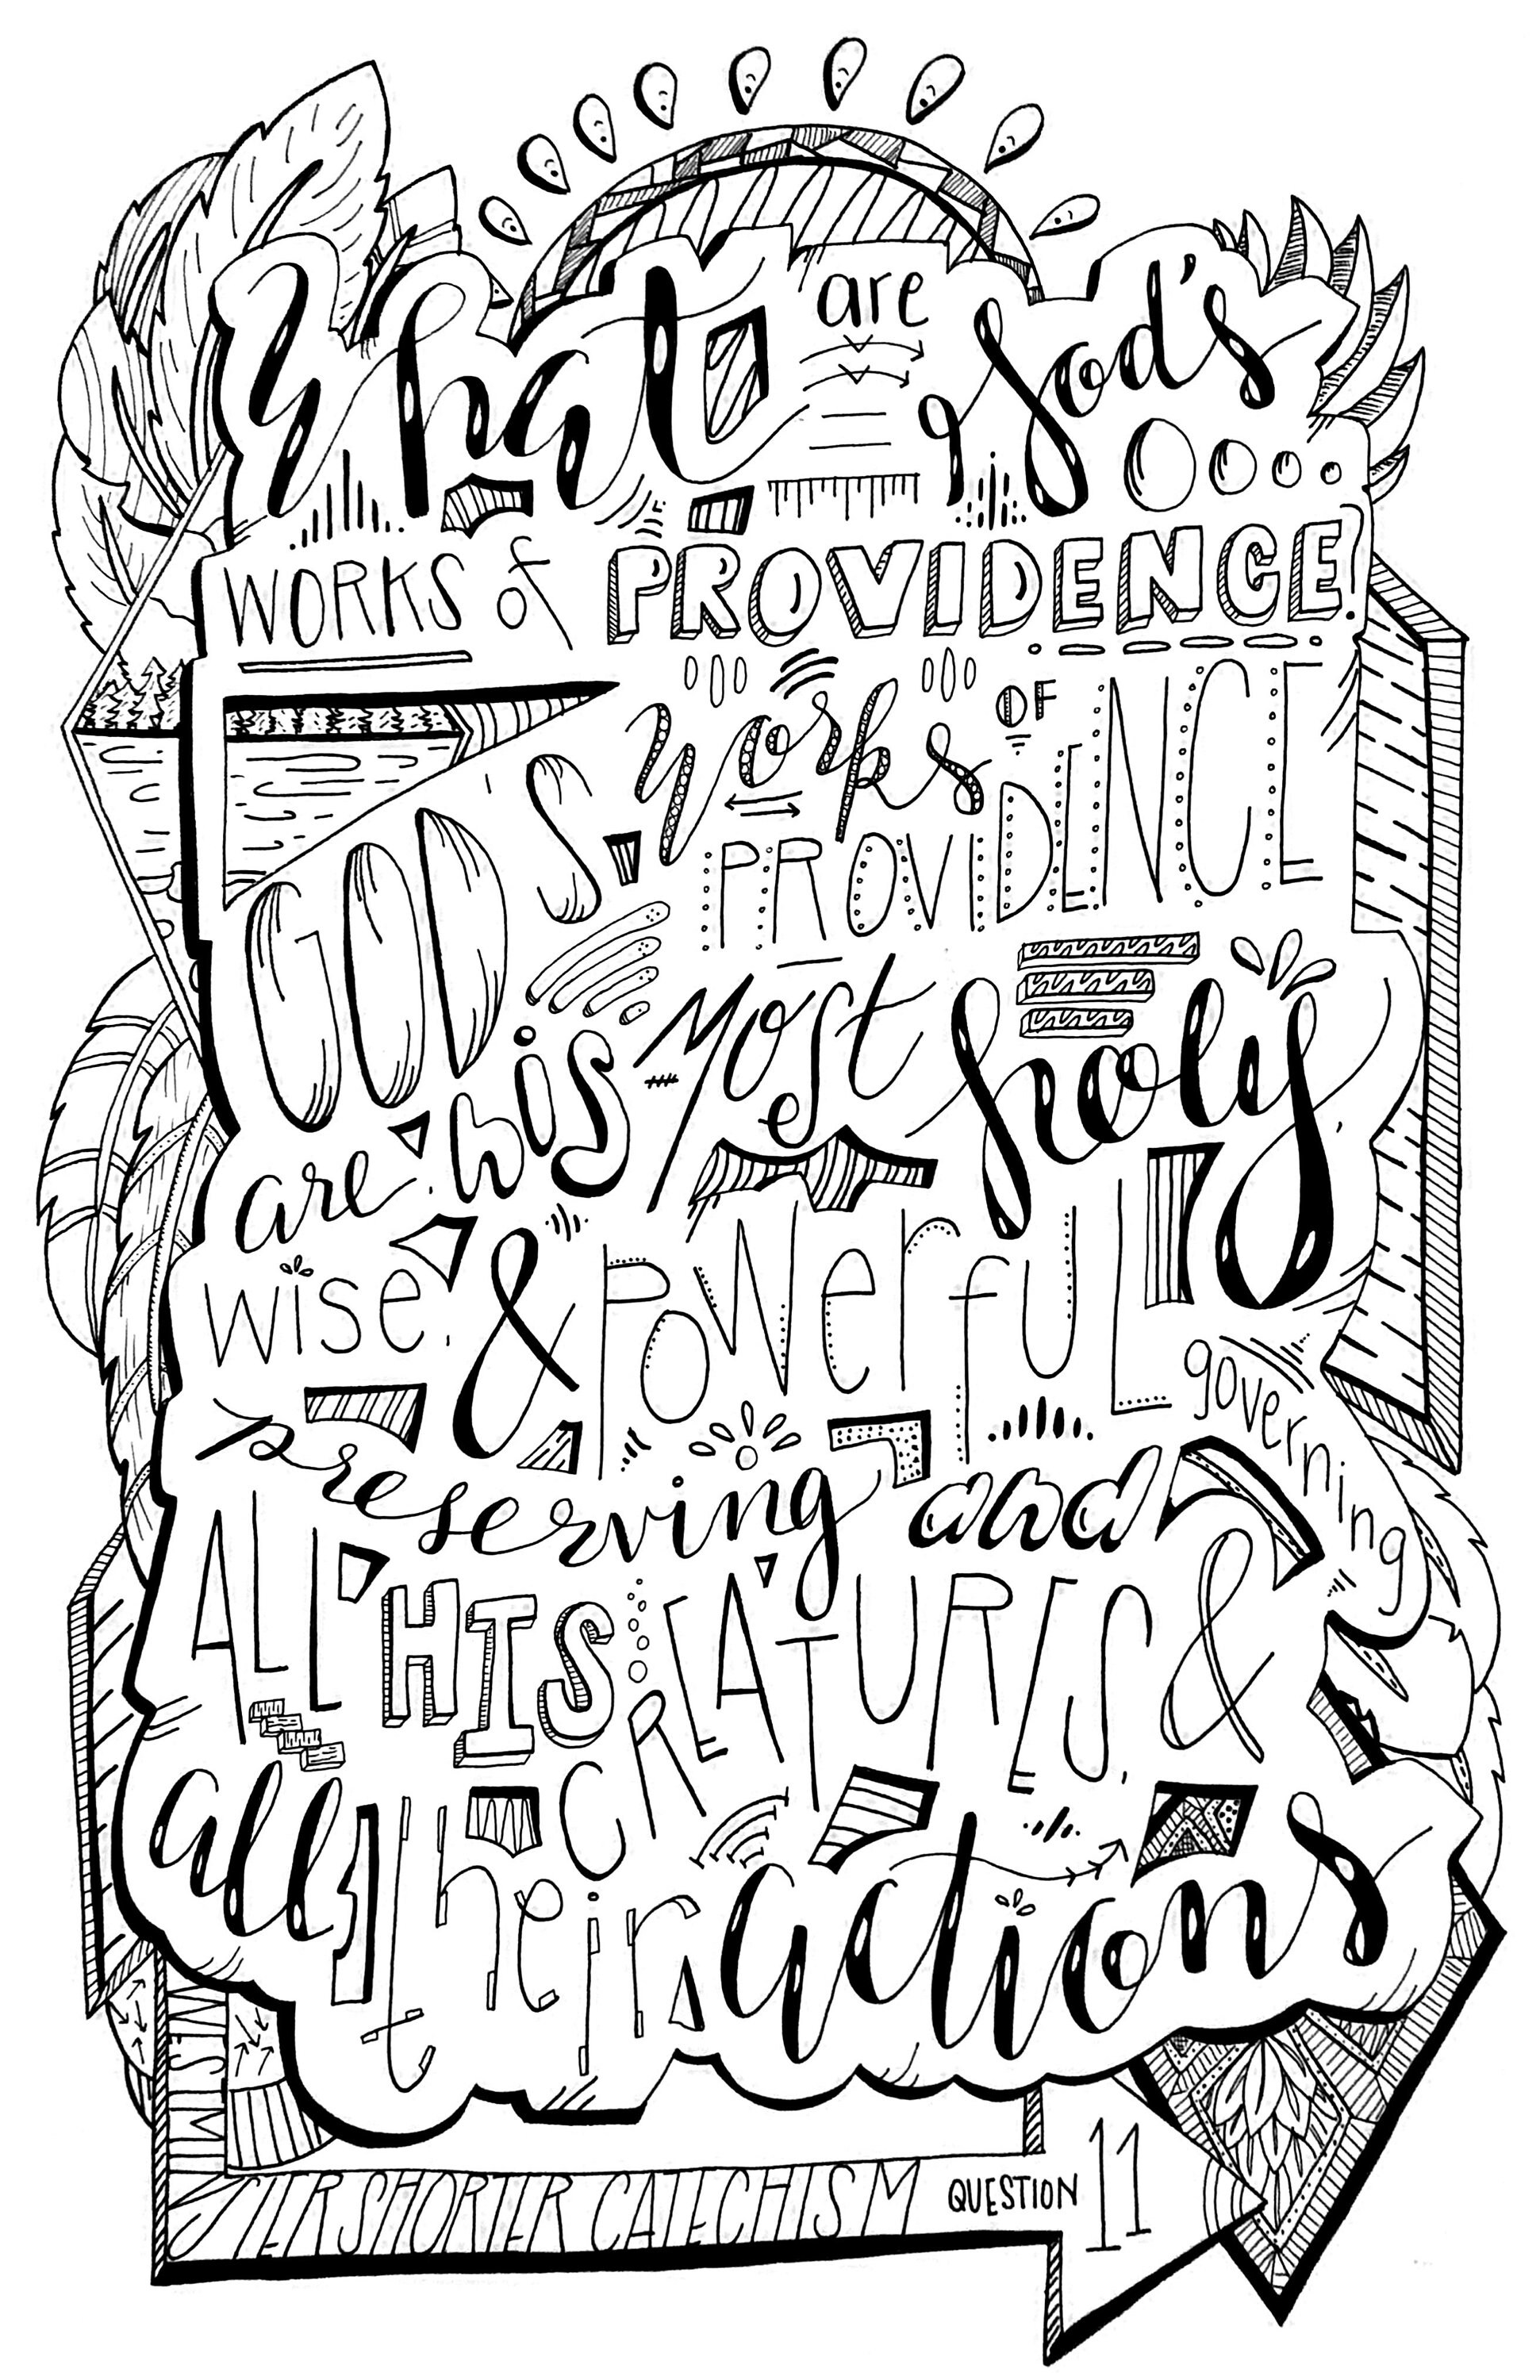 What are God's
WORKS of PROVIDENCE?
GOD'S works OF PROVIDENCE
are his most holy,
wise, & Powerful
preserving and governing
ALL HIS CREATURES, &
all their actions
WESTMINSTER SHORTER CATECHISM QUESTION 11